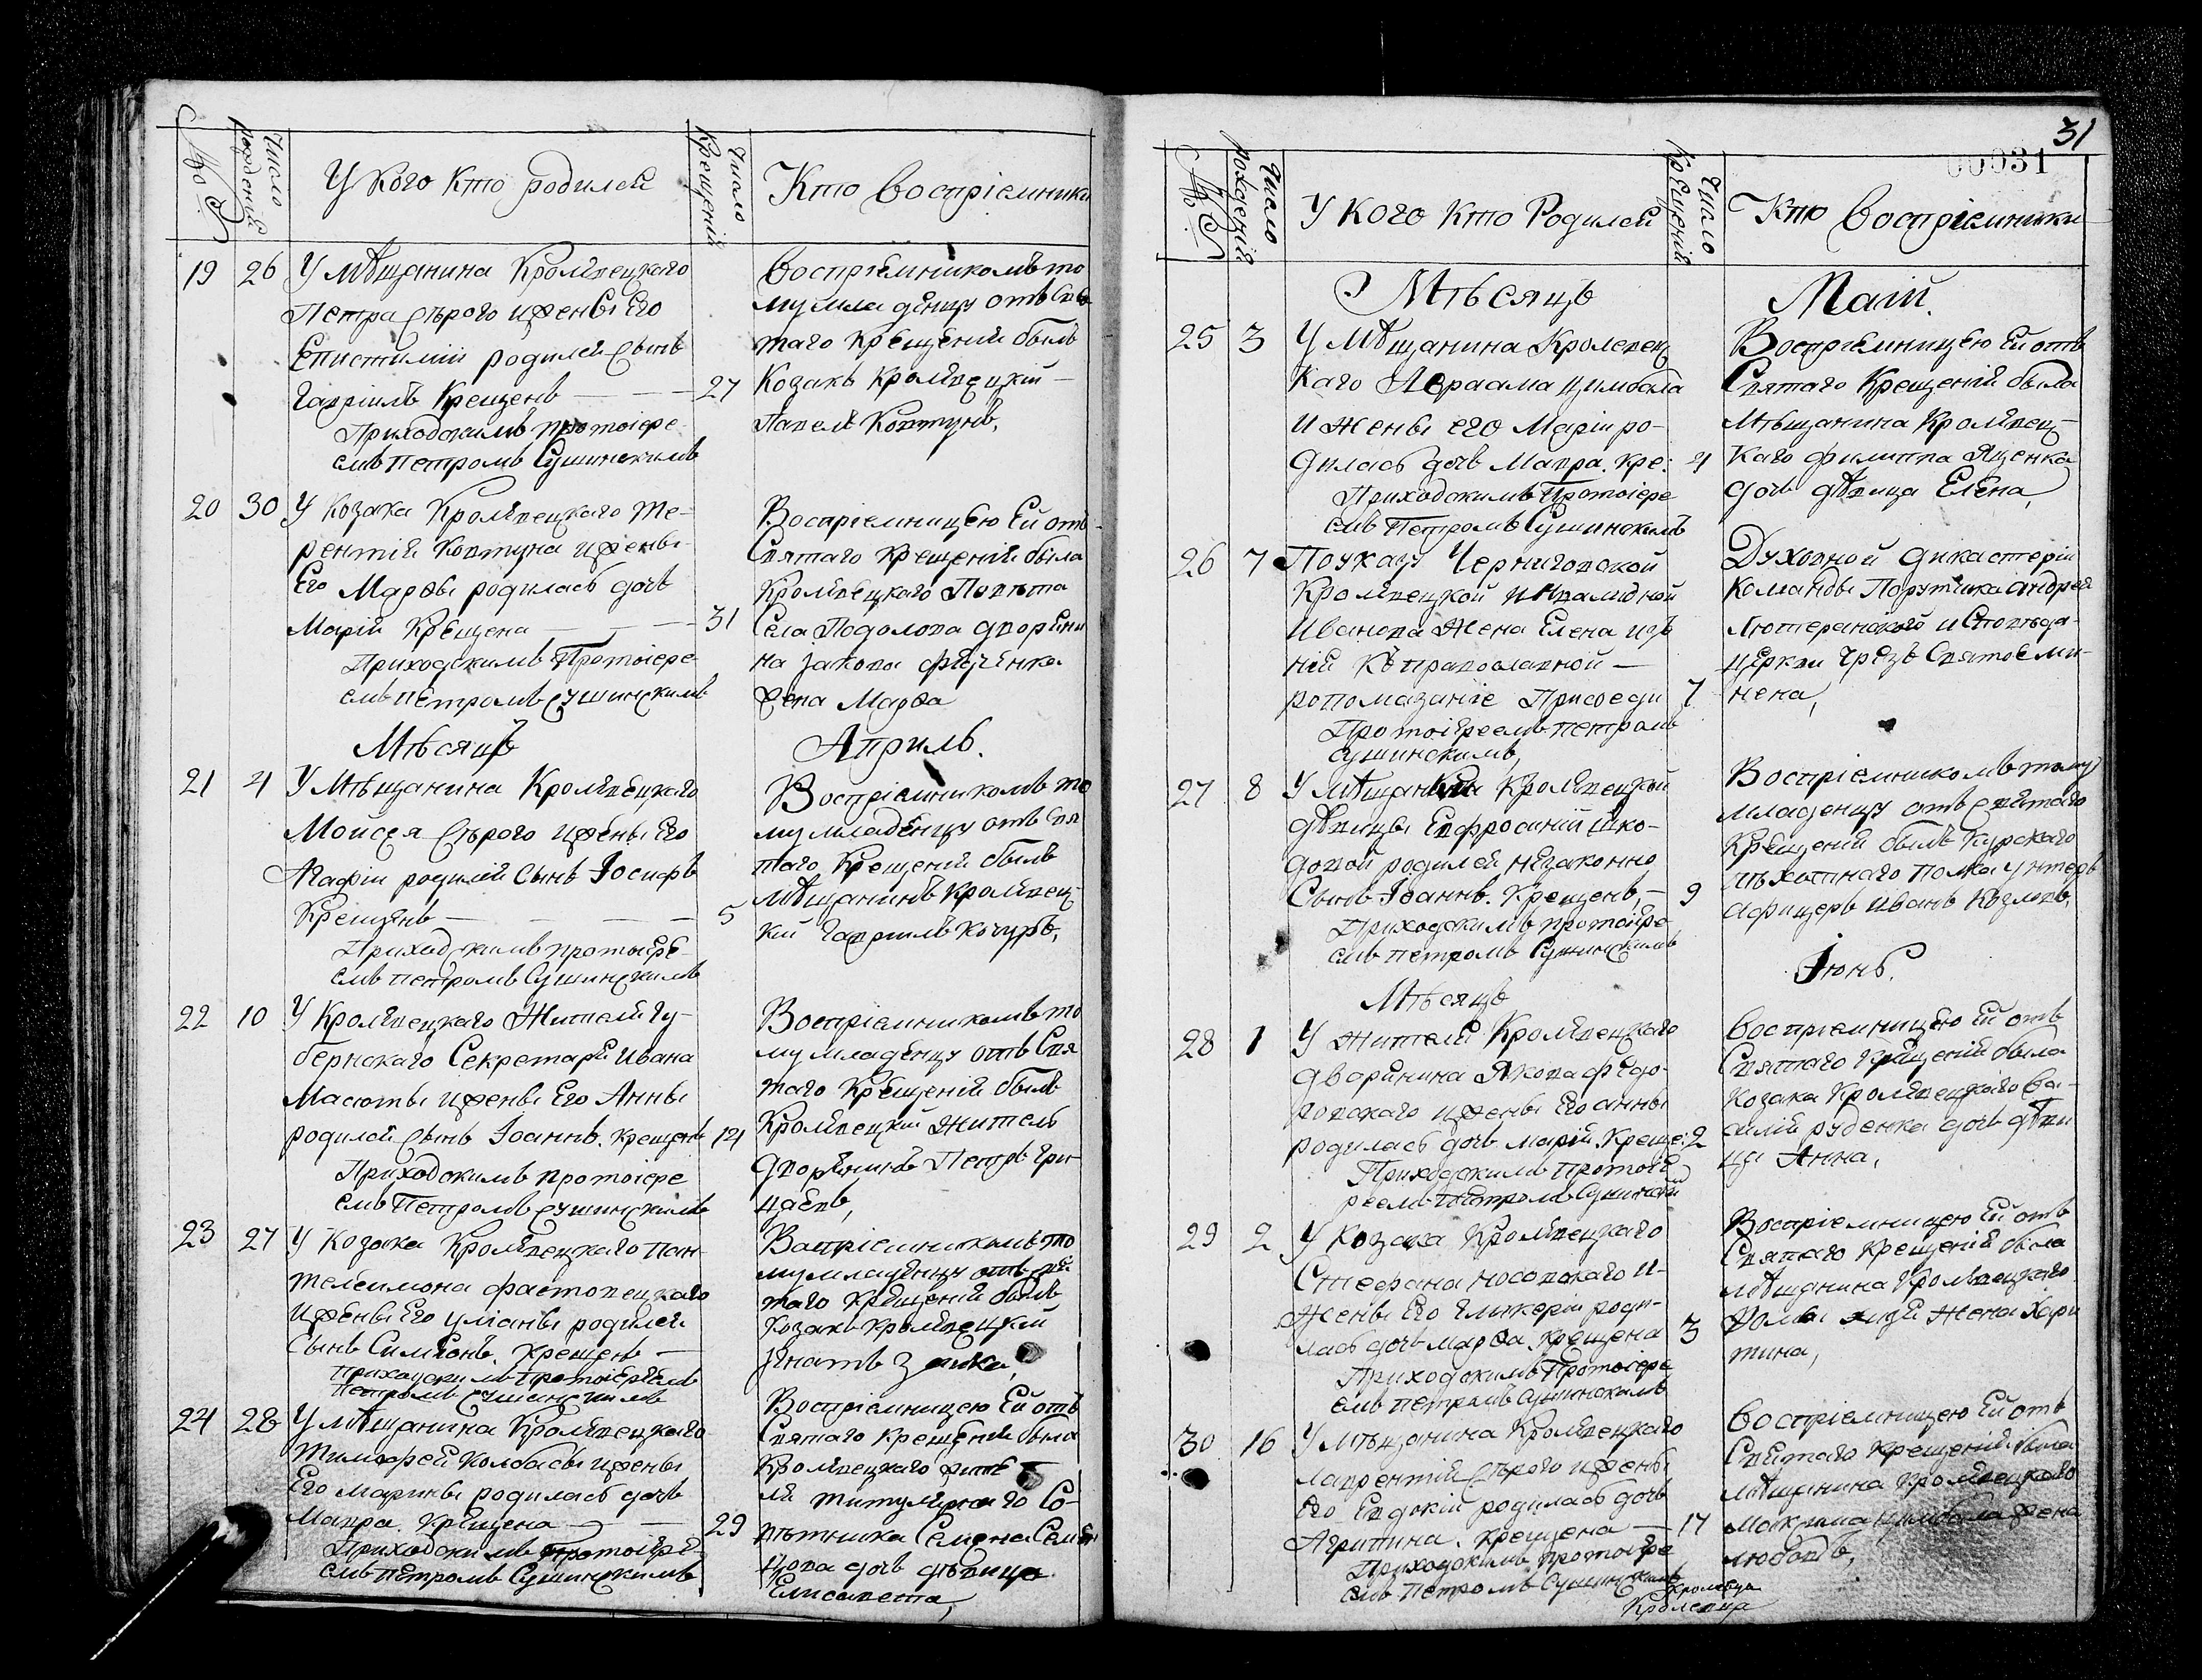 №
Число рожденій
У кого кто родилсй
Число Крещеній
Кто Воспріемники
19 26 У мѣщанина Кролѣвецкаго
Петра Сѣрого и жены Его
Епистиміи родилсй сынъ
Гавріилъ Крещенъ — — — 27
Приходскимъ протоіере-
емъ Петромъ Сушинскимъ
Воспріемникомъ то
му младенцу отъ Свя
таго Крещеній былъ
Козакъ Кролѣвецкій —
Павелъ Ковтунъ,
20 30 У Козака Кролѣвецкаго Те-
рентій Ковтуна и жены
Его Марѳы родилась дочь
Марій Крещена — — — 31
Приходскимъ Протоіере-
емъ Петромъ Сушинскимъ
Воспріемницею Ей отъ
Святаго Крещеній была
Кролѣвецкаго Повѣта
Села Подолова дворяни
на Јакова
жена Марѳа
Мѣсяцъ
Априль.
21 4 У Мѣщанина Кролѣвецкаго
Мойсея Сѣрого и жены Его
Агафіи родилсй Сынъ Іосифъ
Крещенъ — — — — 5
Приходскимъ протоіере-
емъ Петромъ Сушинскимъ
Воспріемникомъ то
му младенцу отъ Свя
таго Крещеній былъ
Мѣщанинъ Кролѣвец-
кій Гавріилъ Кочуръ,
22 10 У Кролѣвецкаго Жителй Гу-
бернскаго Секретарй Ивана
Масюты и жены Его Анны
родилсй сынъ Іоаннъ. Крещенъ 14
Приходскимъ протоіере
емъ Петромъ Сушинскимъ
Воспріемникомъ то
му младенцу отъ Свя
таго Крещеній былъ
Кролѣвецкій Житель
Дворянинъ Петръ Гри-
цаевъ,
23 27 У Козака Кролѣвецкаго Пан-
телеимона Фастовецкаго
и жены Его Уліаны родилсй
Сынъ Симеонъ. Крещенъ —
Приходскимъ Протоіереемъ
Петромъ Сушинскимъ
Воспріемникомъ то
му младенцу отъ Свй
таго Крещеній былъ
Козакъ Кролѣвецкій
Јгнатъ Заика,
24 28 У мѣщанина Кролѣвецкаго
Тимофей Колбасы и жены
Его Марины родилась дочь
Мавра. Крещена — — 29
Приходскимъ протоіере-
емъ Петромъ Сушинскимъ
Воспріемницею Ей отъ
Святаго Крещеній была
Кролѣвецкаго жите-
лй титулярнаго Со-
вѣтника Семена
дочь дѣвица
Елисавета,
31
00031
№
Число рожденій
У кого кто Родилсй
Число Крещеній
Кто Воспріемники
Мѣсяцъ
Маій.
25 3 У Мѣщанина Кролевец
каго Авраама Цимбала
и жены его Маріи ро-
дилась дочь Мавра. Кре: 4
Приходскимъ Протоіере
емъ Петромъ Сушинскимъ
Воспріемницею Ей отъ
Святаго Крещеній была
Мѣщанина Кролѣвец-
каго Филиппа Яценка
дочь дѣвица Елена,
26 7 По указу Черниговской
Кролѣвецкой Инвалидной
Иванова Жена Елена изъ
ній къ православной —
ропомазаніе Присоеди 7
Протоіреемъ Петромъ
Сушинскимъ,
Духовной дикастеріи
Команды Порутчика Андрея
Лютеранскаго Исповѣда-
церкви чрезъ Святое ми-
нена,
27 8 У мѣщанки Кролѣвецкой
дѣвицы Евфросиніи Шко-
довой родилсй незаконно
Сынъ Іоаннъ. Крещенъ — 9
Приходскимъ протоіере
емъ Петромъ Сушинскимъ
Воспріемникомъ тому
младенцу отъ святаго
Крещеній былъ Курскаго
пѣхотнаго Полка Унтеръ
Афицеръ Иванъ Козловъ.
Мѣсяцъ
Іюнь.
28 1 У Жителй Кролѣвецкаго
дворянина Якова Федо-
ровскаго и жены Его Анны
родилась дочь Марій. Креще: 2
Приходскимъ протоіе
реемъ Петромъ Сушинскимъ
Воспріемницею Ей отъ
Святаго Крещеній была
Козака Кролѣвецкаго Ва-
силій Руденка дочь дѣви
ца Анна,
29 2 У Козака Кролѣвецкаго
Стефана Носовскаго и
Жены Его Гликеріи роди-
лась дочь Марѳа. Крещена 3
Приходскимъ Протоіере
емъ Петромъ Сушинскимъ
Воспріемницею Ей отъ
Святаго Крещеній была
мѣщанина Кролѣвецкаго
Ѳомы Жена Хари
тина,
30 16 У Мѣщанина Кролѣвецкаго
Лаврентій Сѣрого и жены
Его Евдокіи родилась дочь
Агрипина. Крещена — 17
Приходскимъ протоіере
емъ Петромъ Сушинскимъ
Воспріемницею Ей отъ
Святаго Крещеній была
мѣщанина Кролѣвецкаго
Максима Цимбала жена
Любовъ,
Кролевца
Кролевца